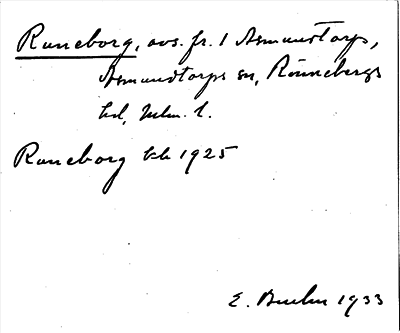 Runeborg, avs. fr. 1 Asmundtorp,
Asmundtorps sn, Rönnebergs
hd, Mlm. l.
Runeborg kb 1925
E. 1933